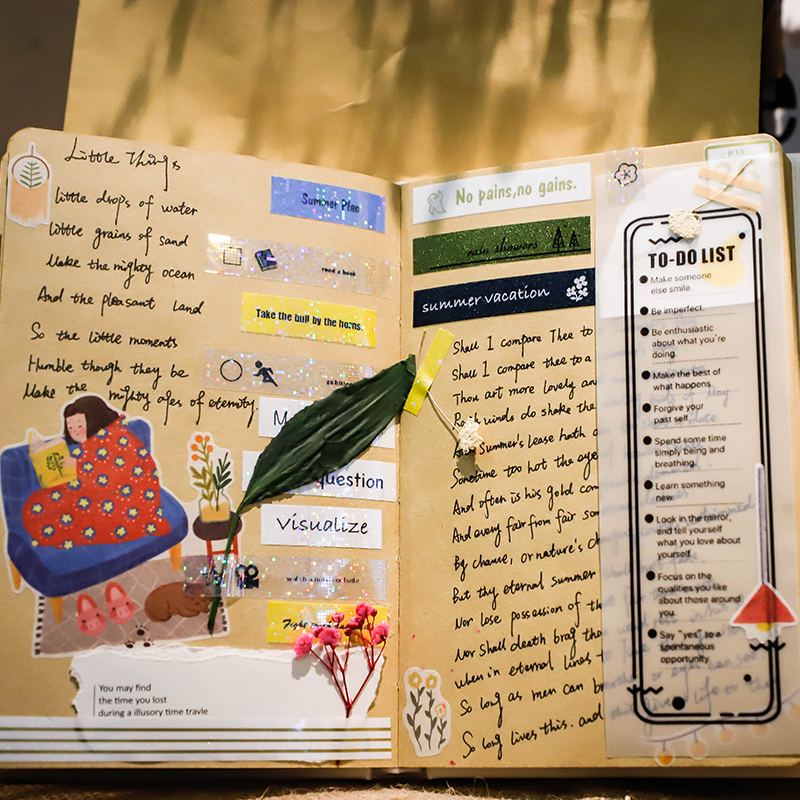 Little Things
little drops of water
little grains of sand
Make the mighty ocean
And the pleasant land
So the little moments
Humble though they be
Make the mighty ages of eternity.
Summer Plan
read a book
Take the bull by the horns.
question
Visualize
You may find
the time you lost
during a illusory time travle
No pains,no gains.
rain showers
summer vacation
Shall I compare Thee to
Shall I compare thee to a
Thou art more lovely an
winds do shake the
Summer's lease hath a
Sometime too hot the eye
And often is his gold com
And every fair from fair som
By chance, or nature's ch
But thy eternal summer
Nor lose possession of th
Nor shall death brag tho
when in eternal lines t
So long as men can br
So long lives this. and
DAY
TO-DO LIST
Make someone
else smile.
Be imperfect.
Be enthusiastic
about what you're
doing.
Make the best of
what happens.
Forgive your
past self.
Spend some time
simply being and
breathing.
Learn something
new.
Look in the mirror,
and tell yourself
what you love about
yourself.
Focus on the
qualities you like
about those around
you.
Say "yes" to a
spontaneous
opportunity.